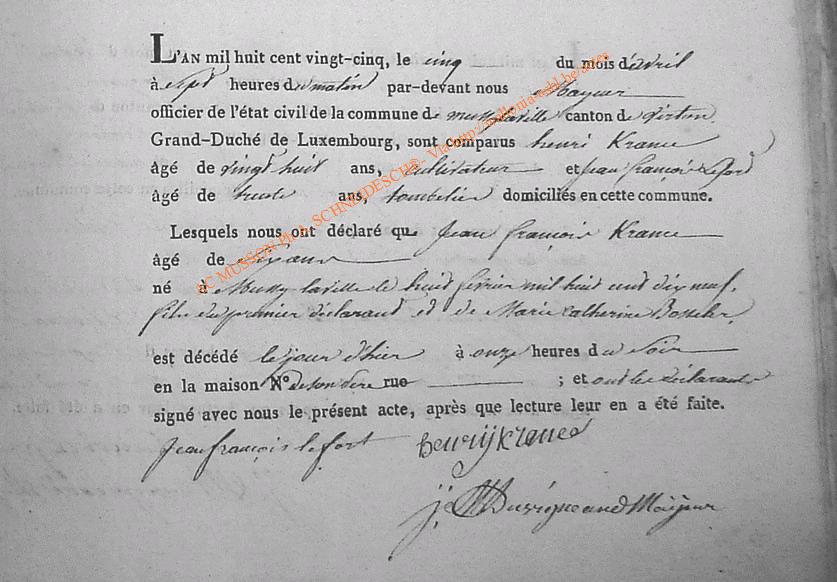 L'AN mil huit cent vingt-cinq, le cinq du mois d'avril
à sept heures du matin par-devant nous Mayeur
officier de l'état civil de la commune de mussy laville canton de virton
Grand-Duché de Luxembourg, sont comparus henri Krance
âgé de vingt huit ans, cultivateur et jean françois lefort
âgé de trente ans, domiciliés en cette commune.
Lesquels nous ont déclaré que Jean françois Krance
âgé de six ans
né à Mussy laville le huit fevrier mil huit cent dix neuf,
fils du premier déclarant et de Marie Catherine
est décédé le jour d'hier à onze heures du soir
en la maison N° de son père rue ; et ont les déclarants
signé avec nous le présent acte, après que lecture leur en a été faite.
Jean françois lefort henrij krance
Mayeur
AC MUSSON PH A. SCHNEIDESCH©- Vla http://wallonia-asbl.be/actes